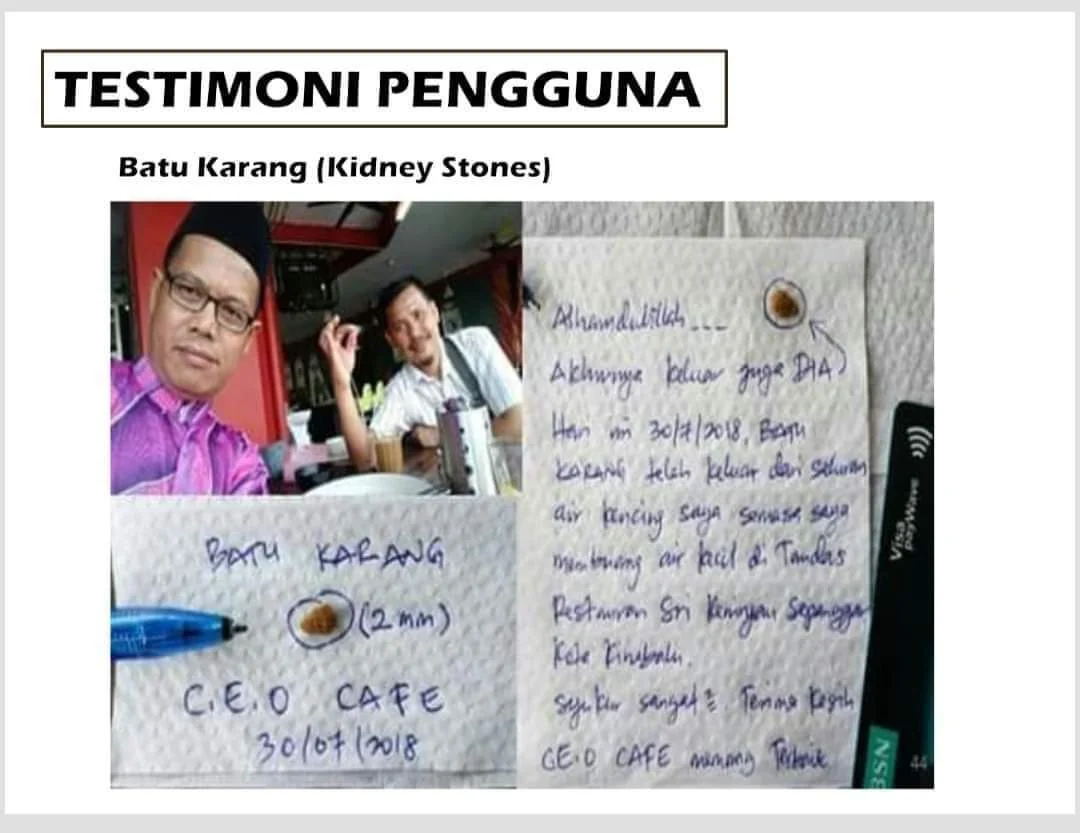 TESTIMONI PENGGUNA
Batu Karang (Kidney Stones)
BATU KARANG
(2 mm)
C.E.O CAFE
30/07/2018
Alhamdulillah ---
Akhirnya keluar juga DIA
Hari ini 30/7/2018, BATU
KARANG telah keluar dari saluran
air kencing saya semasa saya
membuang air kecil di Tandas
Restauran Sri Keningau Sepanggar
Kota Kinabalu.
syukur sangat2 Terima Kasih
CE.O CAFE memang Terbaik
Visa
payWave
BSN
44